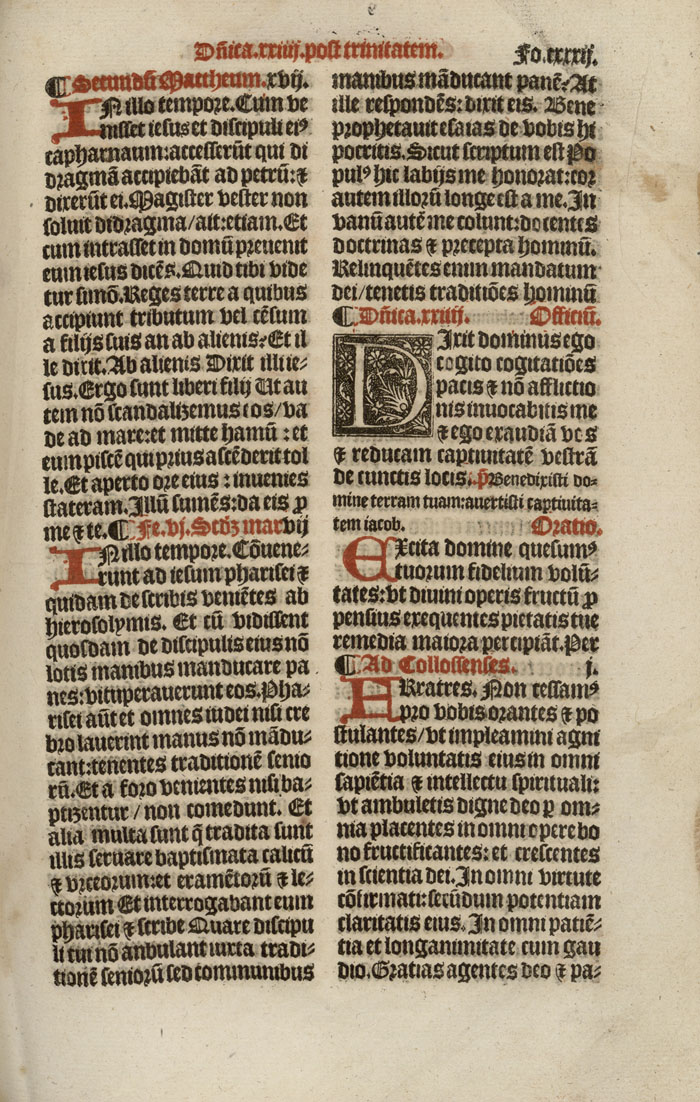 Dñica.xxiiij.post trinitatem.
Fo.cxxxij.
¶ Secundũ Mattheum.xvij.
IN illo tempore. Cum ve
nisset iesus et discipuli eiꝰ
capharnaum:accesserũt qui di
dragmã accipiebãt ad petrũ:⁊
dixerũt ei. Magister vester non
soluit didragma/ait:etiam. Et
cum intrasset in domũ preuenit
eum iesus dicẽs. Quid tibi vide
tur simõ. Reges terre a quibus
accipiunt tributum vel cẽsum
a filijs suis an ab alienis? Et il
le dixit. Ab alienis Dixit illi ie-
sus. Ergo sunt liberi filij Ut au
tem nõ scandalizemus eos/va
de ad mare:et mitte hamũ : et
eum piscẽ qui prius ascẽderit tol
le. Et aperto ore eius : inuenies
stateram. Illũ sumẽs:da eis ꝓ
me ⁊ te. ¶ Fe.vj. Scdʒ mar vij
IN illo tempore. Cõuene-
runt ad iesum pharisei ⁊
quidam de scribis veniẽtes ab
hierosolymis. Et cũ vidissent
quosdam de discipulis eius nõ
lotis manibus manducare pa
nes:vituperauerunt eos. Pha-
risei aũt et omnes iudei nisi cre
bro lauerint manus nõ mãdu-
cant:tenentes traditionẽ senio
rũ. Et a foro venientes nisi ba-
ptizentur / non comedunt. Et
alia multa sunt q̃ tradita sunt
illis seruare baptismata calicũ
⁊ vrceorum:et eramẽtorũ ⁊ le-
ctorum Et interrogabant eum
pharisei ⁊ scribe Quare discipu
li tui nõ anbulant iuxta tradi-
tionẽ seniorũ sed communibus
manibus mãducant panẽ? At
ille respondẽs:dixit eis. Bene
prophetauit esaias de vobis hi
pocritis. Sicut scriptum est Po
pulꝰ hic labijs me honorat:cor
autem illorũ longe est a me. In
vanũ autẽ me colunt:docentes
doctrinas ⁊ precepta hominũ.
Relinquẽtes enim mandatum
dei/tenetis traditiões hominũ
¶ Dñica.xxiiij. Officiũ.
DIxit dominus ego
cogito cogitatiões
pacis ⁊ nõ afflictio
nis inuocabitis me
⁊ ego exaudiã vos
⁊ reducam captiuitatẽ vestrã
de cunctis locis. p̃ Benedixisti do-
mine terram tuam:auertisti captiuita-
tem iacob. Oratio.
EXcita domine quesumꝰ
tuorum fidelium volũ-
tates:vt diuini operis fructũ ꝓ
pensius exequentes pietatis tue
remedia maiora percipiãt. Per
¶ Ad Collossenses. j.
FRratres. Non cessamꝰ
pro vobis orantes ⁊ po
stulantes/vt impleamini agni
tione voluntatis eius in omni
sapiẽtia ⁊ intellectu spirituali:
vt ambuletis digne deo ꝑ om-
nia placentes in omni opere bo
no fructificantes: et crescentes
in scientia dei. In omni virtute
cõfirmati:secũdum potentiam
claritatis eius. In omni patiẽ-
tia et longanimitate cum gau
dio. Gratias agentes deo ⁊ pa-